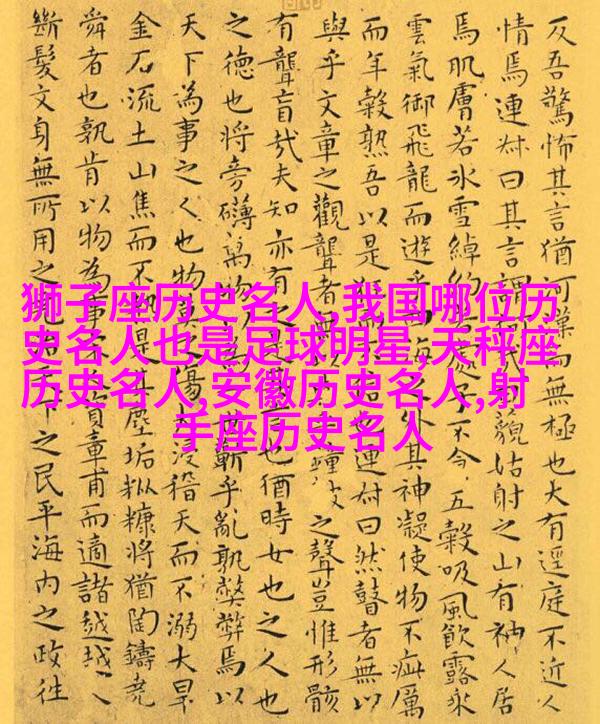 狮子座历史名人,我国哪位历
史名人也是足球明星,天秤座
历史名人,安徽历史名人,射
手座历史名人
吾驚怖其言猶河漢而無極也大有逕庭不近人
情焉連叔曰其言謂藐姑射之山有神人居
焉肌膚若冰雪綽約處子不食五穀吸風飲露乘
雲氣御飛龍而遊乎海之外其神凝使物不疵厲
而年穀熟吾以是也連叔曰然瞽者無以
與乎文章之觀聾者之聲豈惟形骸
有聾盲哉夫知亦有之是也猶時女也之人也
之德也將旁礴萬物世蘄乎亂孰弊弊焉以
天下為事之人也物莫之傷大浸稽天而不溺大旱
金石流土山焦而不是其塵垢粃糠將猶陶鑄堯
舜者也孰肯以物為事資章甫而適諸越越
斷髮文身無所用之天下之民平海內之政往